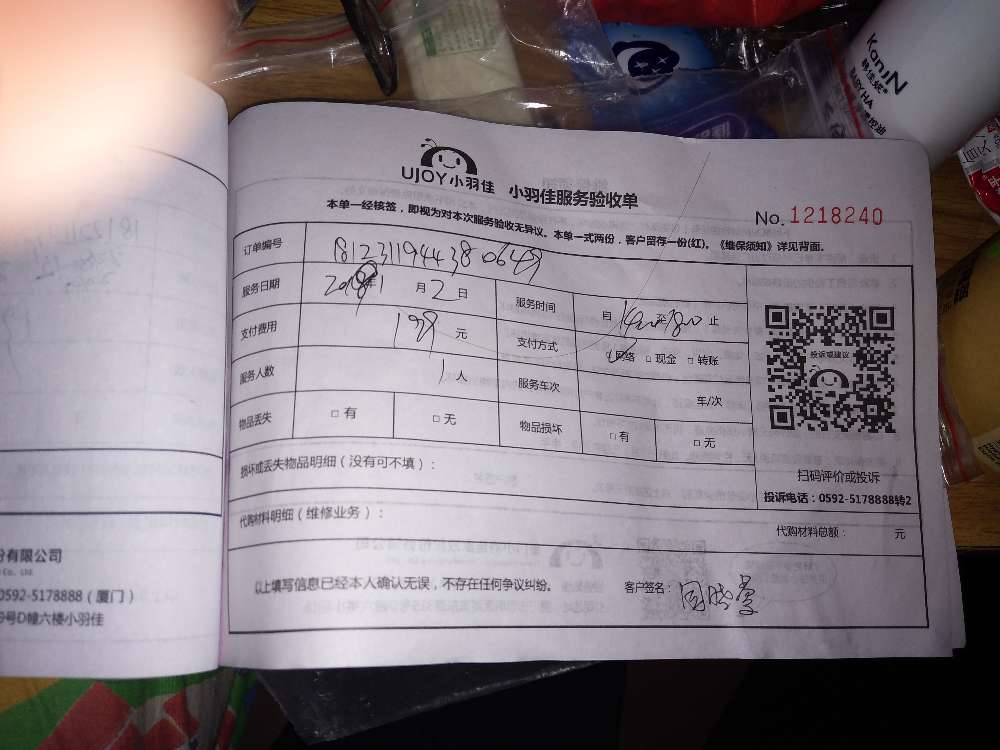 UJOY小羽佳 小羽佳服务验收单
No. 1218240
本单一经核签，即视为对本次服务验收无异议。本单一式两份，客户留存一份(红)。《维保须知》详见背面。
订单编号
服务日期 年1月2日 服务时间 自 至 止
支付费用 199元 支付方式 网络 □ 现金 □ 转账
服务人数 1人 服务车次 车/次
物品丢失 □ 有 □ 无 物品损坏 □ 有 □ 无
投诉或建议
扫码评价或投诉
投诉电话：0592-5178888转2
损坏或丢失物品明细（没有可不填）：
代购材料明细（维修业务）： 代购材料总额： 元
以上填写信息已经本人确认无误，不存在任何争议纠纷。 客户签名：
份有限公司
Co., Ltd
0592-5178888（厦门）
9号D幢六楼小羽佳
KanjiN
BABY HA